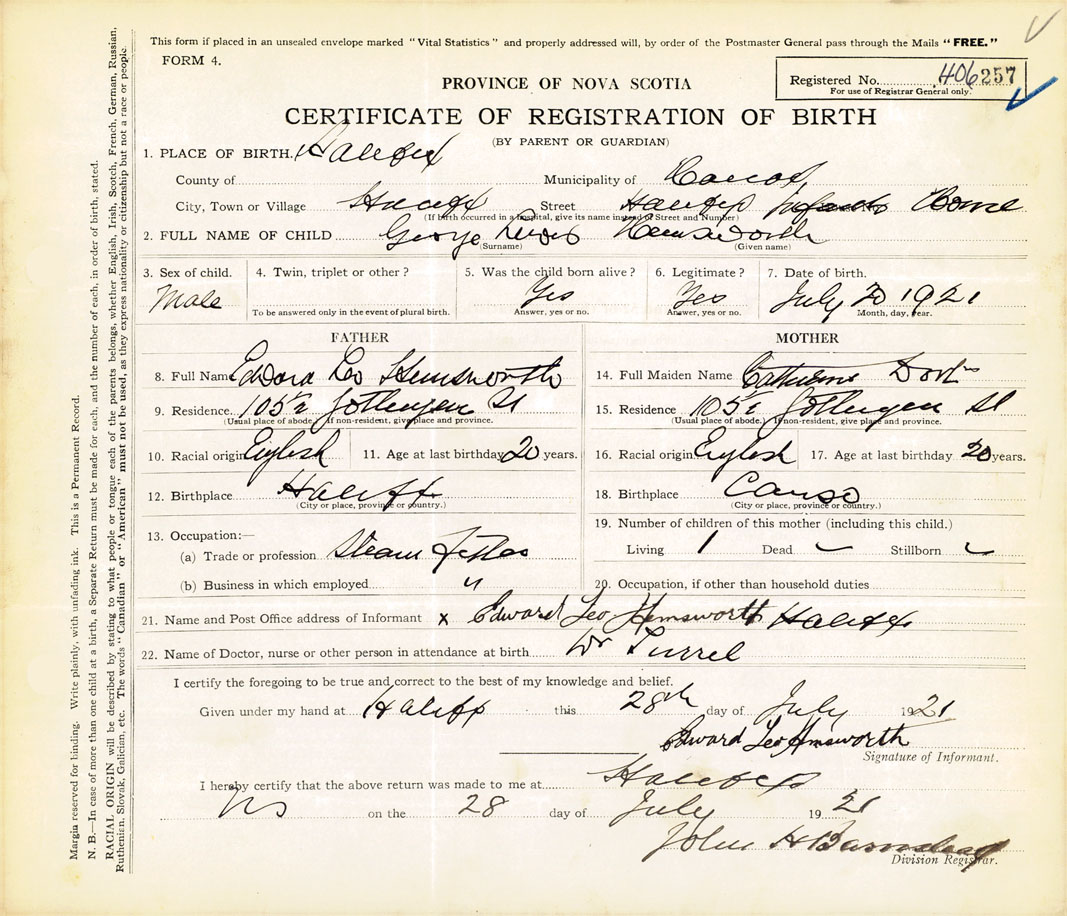 This form if placed in an unsealed envelope marked "Vital Statistics" and properly addressed will, by order of the Postmaster General pass through the Mails "FREE."
FORM 4.
PROVINCE OF NOVA SCOTIA
Registered No. 406257
For use of Registrar General only.
CERTIFICATE OF REGISTRATION OF BIRTH
(BY PARENT OR GUARDIAN)
1. PLACE OF BIRTH. Halifax
County of Municipality of
City, Town or Village Halifax Street Halifax Infants Home
(If birth occurred in a hospital, give its name instead of Street and Number)
2. FULL NAME OF CHILD George Hemsworth
(Surname) (Given name)
3. Sex of child. 4. Twin, triplet or other? 5. Was the child born alive? 6. Legitimate? 7. Date of birth.
Male Yes Yes July 20 1921
To be answered only in the event of plural birth. Answer, yes or no. Answer, yes or no. Month, day, year.
FATHER MOTHER
8. Full Name Edward Leo Hemsworth 14. Full Maiden Name Catherine
9. Residence 105½ Gottingen St 15. Residence 105½ Gottingen St
(Usual place of abode. If non-resident, give place and province. (Usual place of abode.) If non-resident, give place and province.
10. Racial origin English 11. Age at last birthday 20 years. 16. Racial origin English 17. Age at last birthday 20 years.
12. Birthplace Halifax 18. Birthplace Canso
(City or place, province or country.) (City or place, province or country.)
13. Occupation:— 19. Number of children of this mother (including this child.)
(a) Trade or profession Steam Fitter Living 1 Dead Stillborn
(b) Business in which employed " 20. Occupation, if other than household duties
21. Name and Post Office address of Informant x Edward Leo Hemsworth Halifax
22. Name of Doctor, nurse or other person in attendance at birth Dr Turrel
I certify the foregoing to be true and correct to the best of my knowledge and belief.
Given under my hand at Halifax this 28th day of July 1921
Edward Leo Hemsworth
Signature of Informant.
I hereby certify that the above return was made to me at Halifax
NS on the 28 day of July 1921
John H Barnstead
Division Registrar.
Margin reserved for binding. Write plainly, with unfading ink. This is a Permanent Record.
N. B.—In case of more than one child at a birth, a Separate Return must be made for each, and the number of each, in order of birth, stated.
RACIAL ORIGIN will be described by stating to what people or tongue each of the parents belongs, whether English, Irish, Scotch, French, German, Russian,
Ruthenian, Slovak, Galician, etc. The words "Canadian" or "American" must not be used, as they express nationality or citizenship but not a race or people.